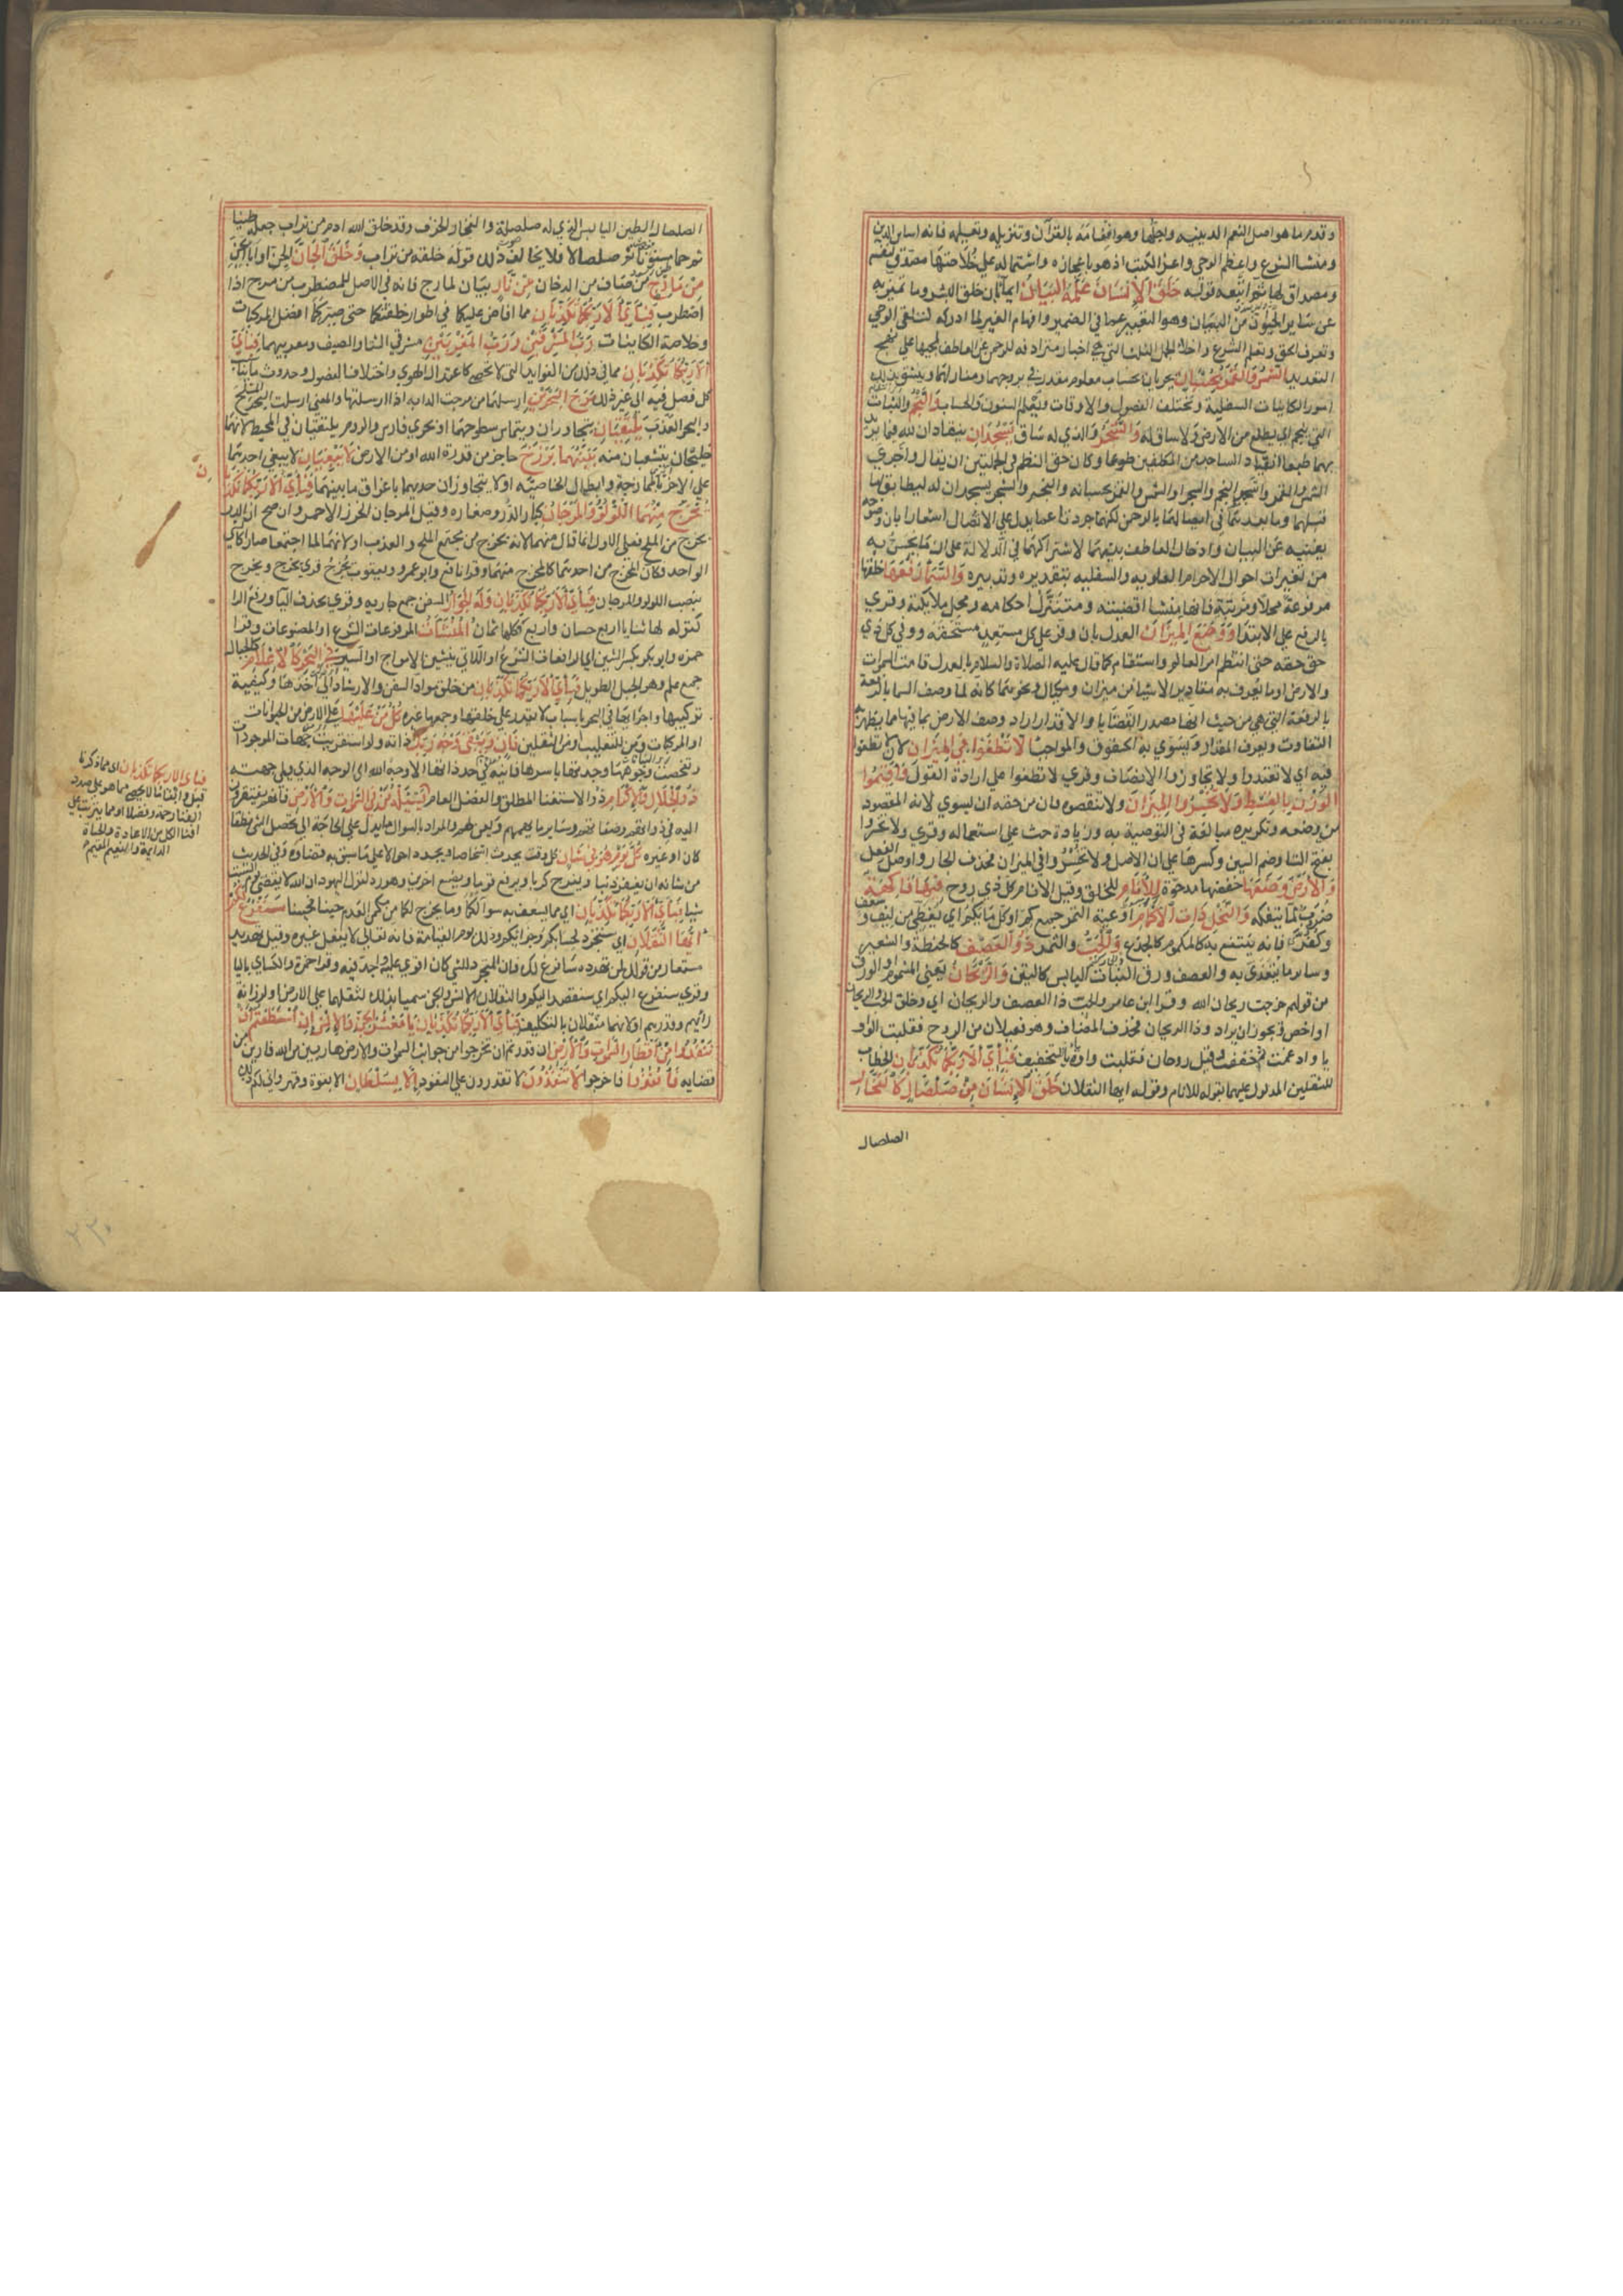 وقدم ما هو اصل النعم الدينيه واجلها وهو انعامه بالقرآن وتنزيله وتعليمه فانه اساس الدين
ومنشأ الشرع واعظم الوحي واعز الكتب اذ هو باعجازه واشتماله على خلاصتها مصدق لنفسه
ومصداق لها ثم اتبعه قوله خَلَقَ الْإِنْسَانَ عَلَّمَهُ الْبَيَانَ ايماء بان خلق البشر وما تميز به
عن سائر الحيوان من البيان وهو التعبير عما في الضمير وافهام الغير لما ادركه لتلقى الوحي
وتعرف الحق وتعلم الشرع واخلاء الجمل الثلث التي هي اخبار مترادفه للرحمن عن العاطف لمجيها على نهج
التعديد الشَّمْسُ وَالْقَمَرُ بِحُسْبَانٍ يجريان بحساب معلوم مقدر في بروجهما ومنازلهما ويتسق بذلك
امور الكاينات السفلية وتختلف الفصول والاوقات ويعلم السنون والحساب وَالنَّجْمُ والنبات
الذي ينجم اي يطلع من الارض ولا ساق له وَالشَّجَرُ والذي له ساق يَسْجُدَانِ ينقادان لله فيما يريد
بهما طبعا انقياد الساجد من المكلفين طوعا وكان حق النظم في الجملتين ان يقال واجرى
الشمس والقمر واسجد النجم والشجر او الشمس والقمر بحسبانه والنجم والشجر يسجدان له ليطابق ما
قبلهما وما بعدهما في اتصالهما بالرحمن لكنهما جردتا عما يدل على الاتصال اشعارا بان وضوحه
يغنيه عن البيان وادخال العاطف بينهما لاشتراكهما في الدلالة على ان ما يحس به
من تغيرات احوال الاجرام العلويه والسفليه بتقديره وتدبيره وَالسَّمَاءَ رَفَعَهَا خلقها
مرفوعة محلا ومرتبة فانها منشا اقضيته ومتنزل احكامه ومحل ملائكته وقري
بالرفع على الابتدا وَوَضَعَ الْمِيزَانَ العدل بان وفر على كل مستعد مستحقه ووفى كل ذي
حق حقه حتى انتظم امر العالم واستقام كما قال عليه الصلاة والسلام بالعدل قامت السموات
والارض او ما يعرف به مقادير الاشيا من ميزان ومكيال ونحوهما كانه لما وصف السما بالرفعة
بالرفعة التي هي من حيث انها مصدر القضايا والاقدار اراد وصف الارض بما فيها مما يظهر به
التفاوت ويعرف المقدار ويسوي به الحقوق والمواجب أَلَّا تَطْغَوْا فِي الْمِيزَانِ لان لا تطغوا
فيه اي لا تعتدوا ولا تجاوزوا الانصاف وقري لا تطغوا على ارادة القول وَأَقِيمُوا
الْوَزْنَ بِالْقِسْطِ وَلَا تُخْسِرُوا الْمِيزَانَ ولا تنقصوه فان من حقه ان يسوى لانه المقصود
من وضعه وتكريره مبالغة في التوصية به وزيادة حث على استعماله وقري ولا تخسروا
بفتح التا وضم السين وكسرها على ان الاصل ولا تخسروا في الميزان فحذف الجار واوصل الفعل
وَالْأَرْضَ وَضَعَهَا خفضها مدحوة لِلْأَنَامِ للخلق وقيل الانام كل ذي روح فِيهَا فَاكِهَةٌ
ضروب مما يتفكه وَالنَّخْلُ ذَاتُ الْأَكْمَامِ اوعية التمر جمع كم او كل ما يكم اي يغطي من ليف وسعف
وكفرى فانه ينتفع به كالمكموم كالجذع وَالْحَبُّ والثمر ذُو الْعَصْفِ كالحنطة والشعير
وسائر ما يتغذى به والعصف ورق النبات اليابس كالتبن وَالرَّيْحَانُ يعني المشموم او الرزق
من قولهم خرجت اطلب ريحان الله وقرا ابن عامر والحب ذا العصف والريحان اي وخلق الحب والريحان
او اخص ويجوز ان يراد وذا الريحان فحذف المضاف وهو فيعلان من الروح فقلبت الواو
يا وادغمت ثم خفف وقيل روحان فقلبت واوه يا للتخفيف فَبِأَيِّ آلَاءِ رَبِّكُمَا تُكَذِّبَانِ الخطاب
للثقلين المدلول عليهما بقوله للانام وقوله ايها الثقلان خَلَقَ الْإِنْسَانَ مِنْ صَلْصَالٍ كَالْفَخَّارِ
الصلصال
الصلصال الطين اليابس الذي له صلصلة والفخار الخزف وقد خلق الله ادم من تراب جعله طينا
ثم حما مسنونا ثم صلصالا فلا يخالف ذلك قوله خلقه من تراب وَخَلَقَ الْجَانَّ الجن او ابا الجن
مِنْ مَارِجٍ من صاف من الدخان مِنْ نَارٍ بيان لمارج فانه في الاصل للمضطرب من مرج اذا
اضطرب فَبِأَيِّ آلَاءِ رَبِّكُمَا تُكَذِّبَانِ مما افاض عليكما في اطوار خلقتكما حتى صيركما افضل المركبات
وخلاصة الكاينات رَبُّ الْمَشْرِقَيْنِ وَرَبُّ الْمَغْرِبَيْنِ مشرقي الشتا والصيف ومغربيهما فَبِأَيِّ
آلَاءِ رَبِّكُمَا تُكَذِّبَانِ مما في ذلك من الفوايد التي لا تحصى كاعتدال الهوى واختلاف الفصول وحدوث ما يناسب
كل فصل فيه الى غير ذلك مَرَجَ الْبَحْرَيْنِ ارسلهما من مرجت الدابه اذا ارسلتها والمعنى ارسلت البحر الملح
والبحر العذب يَلْتَقِيَانِ يتجاوران ويتماس سطوحهما او بحري فارس والروم يلتقيان في المحيط لانهما
خليجان ينشعبان منه بَيْنَهُمَا بَرْزَخٌ حاجز من قدرة الله او من الارض لَا يَبْغِيَانِ لا يبغي احدهما
على الاخر بالممازجة وابطال الخاصيه او لا يتجاوزان حديهما باغراق ما بينهما فَبِأَيِّ آلَاءِ رَبِّكُمَا تُكَذِّبَانِ
يُخْرَجُ مِنْهُمَا اللُّؤْلُؤُ وَالْمَرْجَانُ كبار الدر وصغاره وقيل المرجان الخرز الاحمر وان صح ان الدر
يخرج من الملح فعلى الاول انما قال منهما لانه يخرج من مجتمع الملح والعذب او لانهما لما اجتمعا صارا كالشي
الواحد فكان المخرج من احدهما كالمخرج منهما وقرا نافع وابو عمرو ويعقوب يُخرَج وقري نخرج ويخرج
بنصب اللولو والمرجان فَبِأَيِّ آلَاءِ رَبِّكُمَا تُكَذِّبَانِ وَلَهُ الْجَوَارِ السفن جمع جاريه وقري بحذف اليا ورفع الرا
كقوله لها ثنايا اربع حسان واربع فكلها ثمان الْمُنْشَآتُ المرفوعات الشرع او المصنوعات وقرا
حمزه وابو بكر بكسر الشين اي الرافعات الشرع او اللاتي ينشين الامواج او السير فِي الْبَحْرِ كَالْأَعْلَامِ كالجبال
جمع علم وهو الجبل الطويل فَبِأَيِّ آلَاءِ رَبِّكُمَا تُكَذِّبَانِ من خلق مواد السفن والارشاد الى اخذها وكيفية
تركيبها واجرايها في البحر باسباب لا يقدر على خلقها وجمعها غيره كُلُّ مَنْ عَلَيْهَا على الارض من الحيوانات
او المركبات ومن للتغليب او من الثقلين فَانٍ وَيَبْقَى وَجْهُ رَبِّكَ ذاته ولو استقريت جهات الموجودات
وتفحصت وجوهها وجدتها باسرها فانية في حد ذاتها الا وجه الله اي الوجه الذي يلي جهته
ذُو الْجَلَالِ وَالْإِكْرَامِ ذو الاستغنا المطلق والفضل العام يَسْأَلُهُ مَنْ فِي السَّمَاوَاتِ وَالْأَرْضِ فانهم مفتقرون
اليه في ذواتهم وصفاتهم وساير ما يهمهم ويعن لهم والمراد بالسوال ما يدل على الحاجة الى تحصيل الشي نطقا
كان او غيره كُلَّ يَوْمٍ هُوَ فِي شَأْنٍ كل وقت يحدث اشخاصا ويجدد احوالا على ما سبق به قضاوه وفي الحديث
من شانه ان يغفر ذنبا ويفرج كربا ويرفع قوما ويضع اخرين وهو رد لقول اليهود ان الله لا يقضي يوم السبت
شيا فَبِأَيِّ آلَاءِ رَبِّكُمَا تُكَذِّبَانِ اي مما يسعف به سوالكما وما يخرج لكما من مكمن العدم حينا فحينا سَنَفْرُغُ لَكُمْ
أَيُّهَا الثَّقَلَانِ اي سنتجرد لحسابكم وجزائكم وذلك يوم القيامة فانه تعالى لا يفعل غيره وقيل تهديد
مستعار من قولك لمن تهدده سافرغ لك فان المتجرد للشي كان اقوى عليه واجد فيه وقرا حمزة والكساي باليا
وقري سنفرغ اليكم اي سنقصد اليكم والثقلان الانس والجن سميا بذلك لثقلهما على الارض او لرزانة
رايهم وقدرهم او لانهما مثقلان بالتكليف فَبِأَيِّ آلَاءِ رَبِّكُمَا تُكَذِّبَانِ يَا مَعْشَرَ الْجِنِّ وَالْإِنْسِ إِنِ اسْتَطَعْتُمْ أَنْ
تَنْفُذُوا مِنْ أَقْطَارِ السَّمَاوَاتِ وَالْأَرْضِ ان قدرتم ان تخرجوا من جوانب السموات والارض هاربين من الله فارين من
قضايه فَانْفُذُوا فاخرجوا لَا تَنْفُذُونَ لا تقدرون على النفوذ إِلَّا بِسُلْطَانٍ الا بقوة وقهر وانى لكم ذلك
فباي الاء ربكما تكذبان اي مما ذكرنا
قبل وابقاء ما لا يحصى مما هو على صدد
الفنا رحمة وفضلا او مما يترتب على
افنا الكل من الاعادة والحياة
الدايمة والنعيم المقيم
٢٢٠